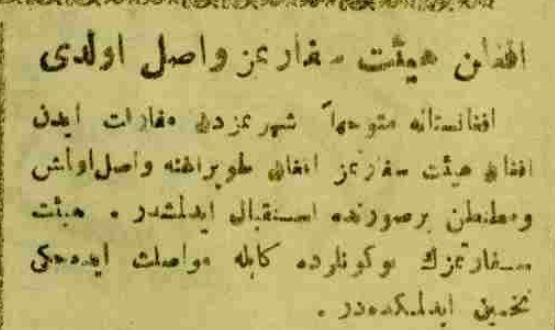 افغان هیئت سفارتمز واصل اولدی
افغانستانه متوجهاً شهرمزدن مفارقت ایدن
افغان هیئت سفارتمز افغان طوپراغنه واصل اولمش
ومطنطن برصورتده استقبال ایدلمشدر . هیئت
سفارتمزك بوکونلرده کابله مواصلت ایده‌جکی
تخمین ایدلمکده‌در .